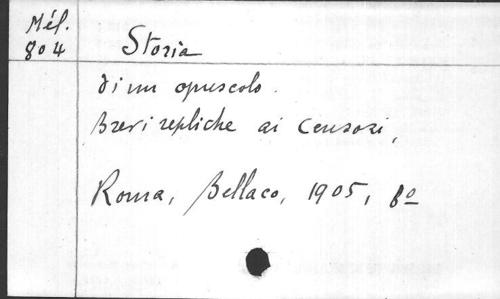 Mél.
804
Storia
di un opuscolo.
Brevi repliche ai Censori,
Roma, Bellaco, 1905, 8º